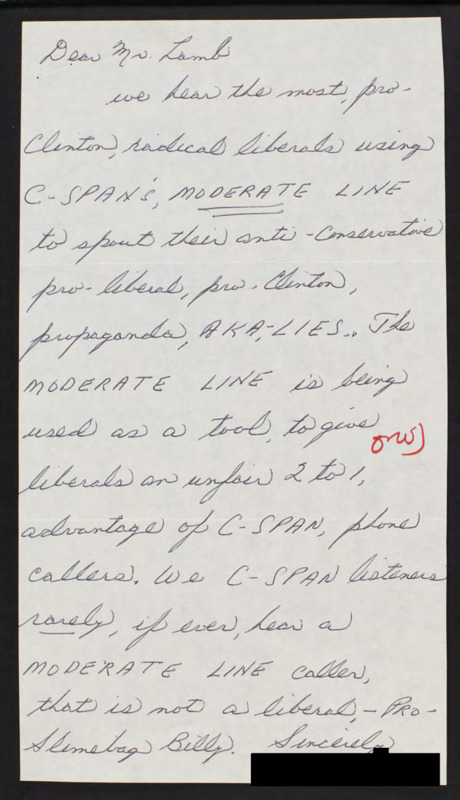 Dear Mr. Lamb
we hear the most, pro-
Clinton, radical liberals using
C-SPAN'S, MODERATE LINE
to spout their anti-Conservative
pro-liberal, pro-Clinton,
propaganda, AKA, LIES.. The
MODERATE LINE is being
used as a tool, to give
liberals an unfair 2 to 1,
advantage of C-SPAN, phone
callers. We C-SPAN listeners
rarely, if ever, hear a
MODERATE LINE caller,
that is not a liberal, - PRO-
Slimebag Billy. Sincerely